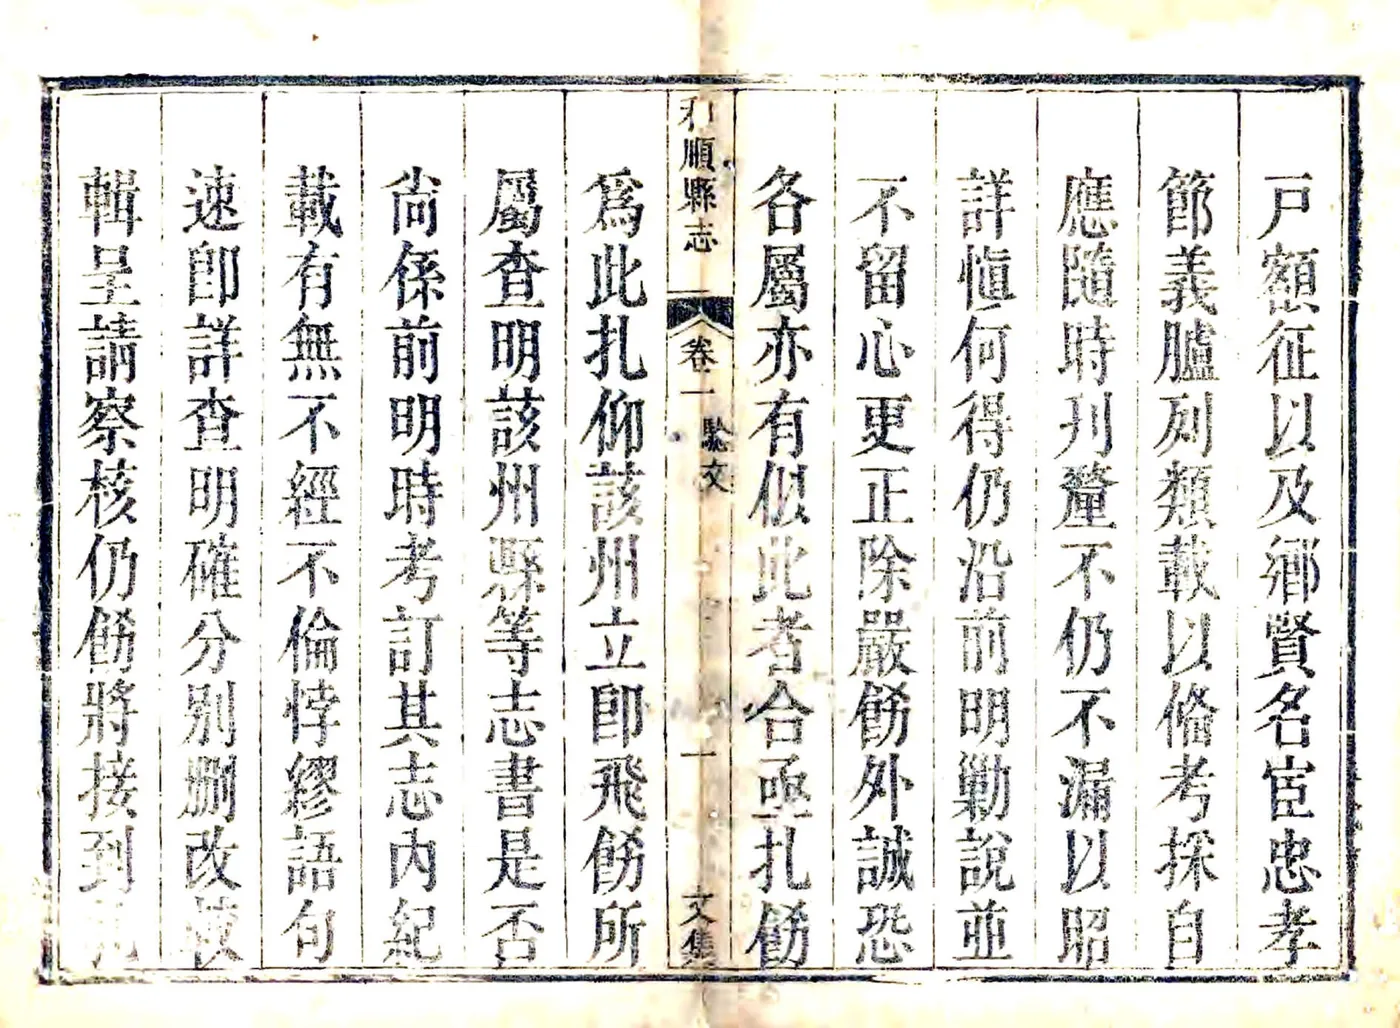 戸額征以及鄉賢名宦忠孝
節義臚列類載以俻考採自
應隨時刋釐不仍不漏以昭
詳愼何得仍沿前明勦說並
不留心更正除嚴飭外誠恐
各屬亦有似此者合亟扎飭
和順縣志 卷一 文 一 文集
爲此扎仰該州立卽飛飭所
屬查明該州縣等志書是否
尙係前明時考訂其志內紀
載有無不經不倫悖繆語句
速卽詳查明確分別删改
輯呈請察核仍飭將接到